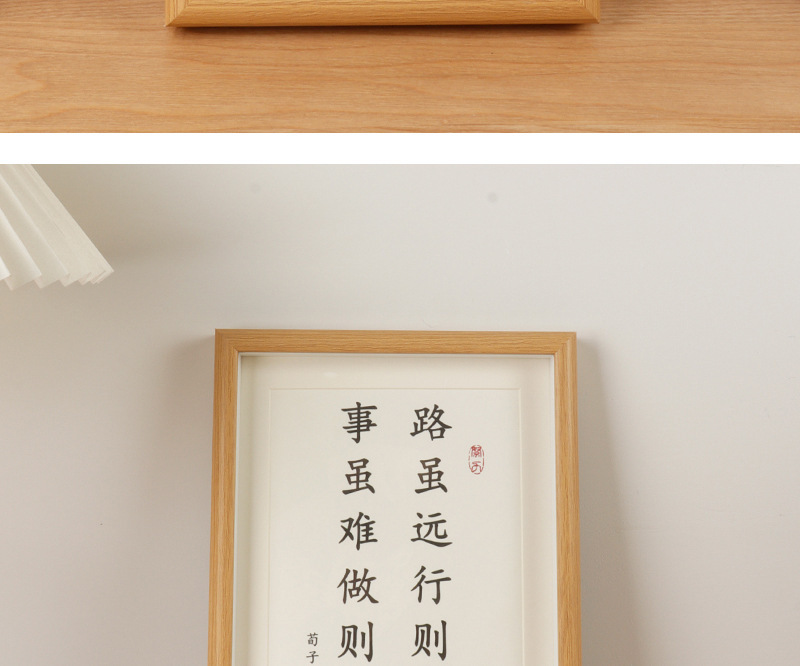 路虽远行则
事虽难做则
荀子